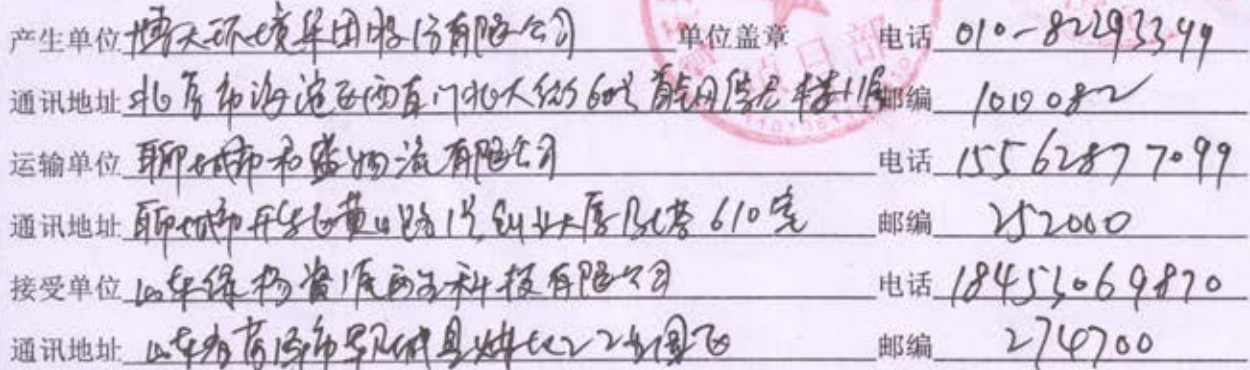 产生单位 博天环境集团股份有限公司 单位盖章 电话 010-82293399
通讯地址 北京市海淀区西直门北大街60号首钢国际大楼11层 邮编 100082
运输单位 聊城市和盛物流有限公司 电话 15562877099
通讯地址 聊城市开发区黄山路1号创业大厦B塔610室 邮编 252000
接受单位 山东绿杨资源再生科技有限公司 电话 18453069870
通讯地址 山东省菏泽市鄄城县煤化工工业园区 邮编 274700
项目部